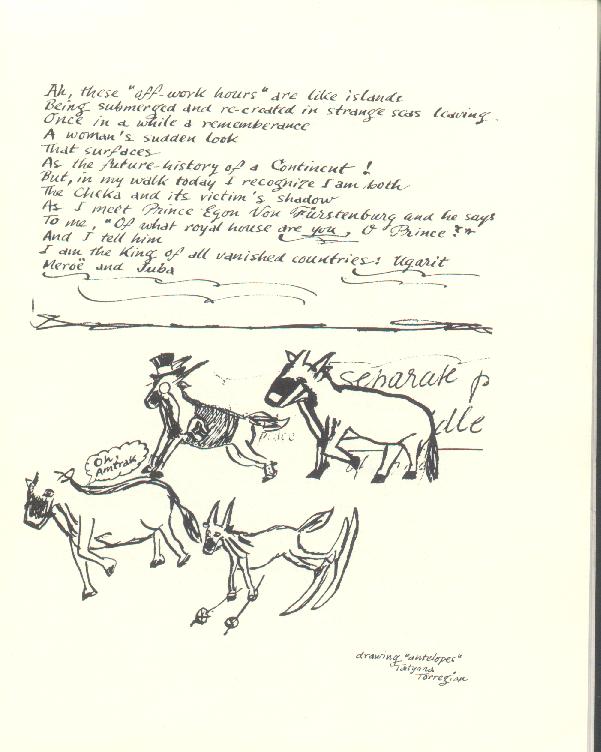 Ah, these "off-work hours" are like islands
Being submerged and re-created in strange seas leaving.
Once in a while a rememberance
A woman's sudden look
That surfaces
As the future-history of a Continent!
But, in my walk today I recognize I am both
The Cheka and its victim's shadow
As I meet Prince Egon Von Fürstenburg and he says
To me, "Of what royal house are you, O Prince?"
And I tell him
I am the King of all vanished countries: Ugarit
Meroë and Juba
separate p
dle
place
Oh, Amtrak
drawing "antelopes"
Tatyana
Torregian